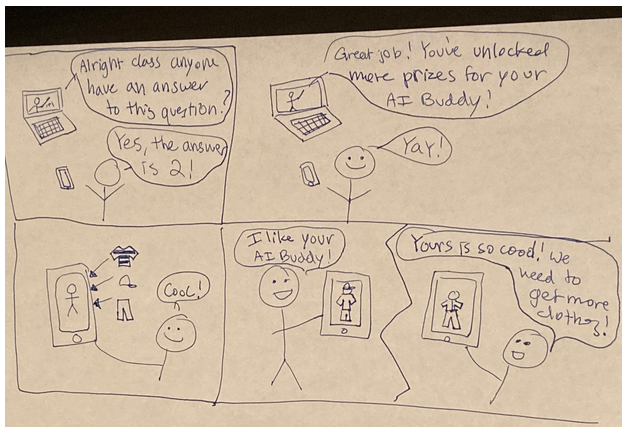 Alright class anyone
have an answer
to this question?
Yes, the answer
is 2!
Great job! You've unlocked
more prizes for your
AI Buddy!
Yay!
Cool!
I like your
AI Buddy!
Yours is so cood! We
need to
get more
clothes!